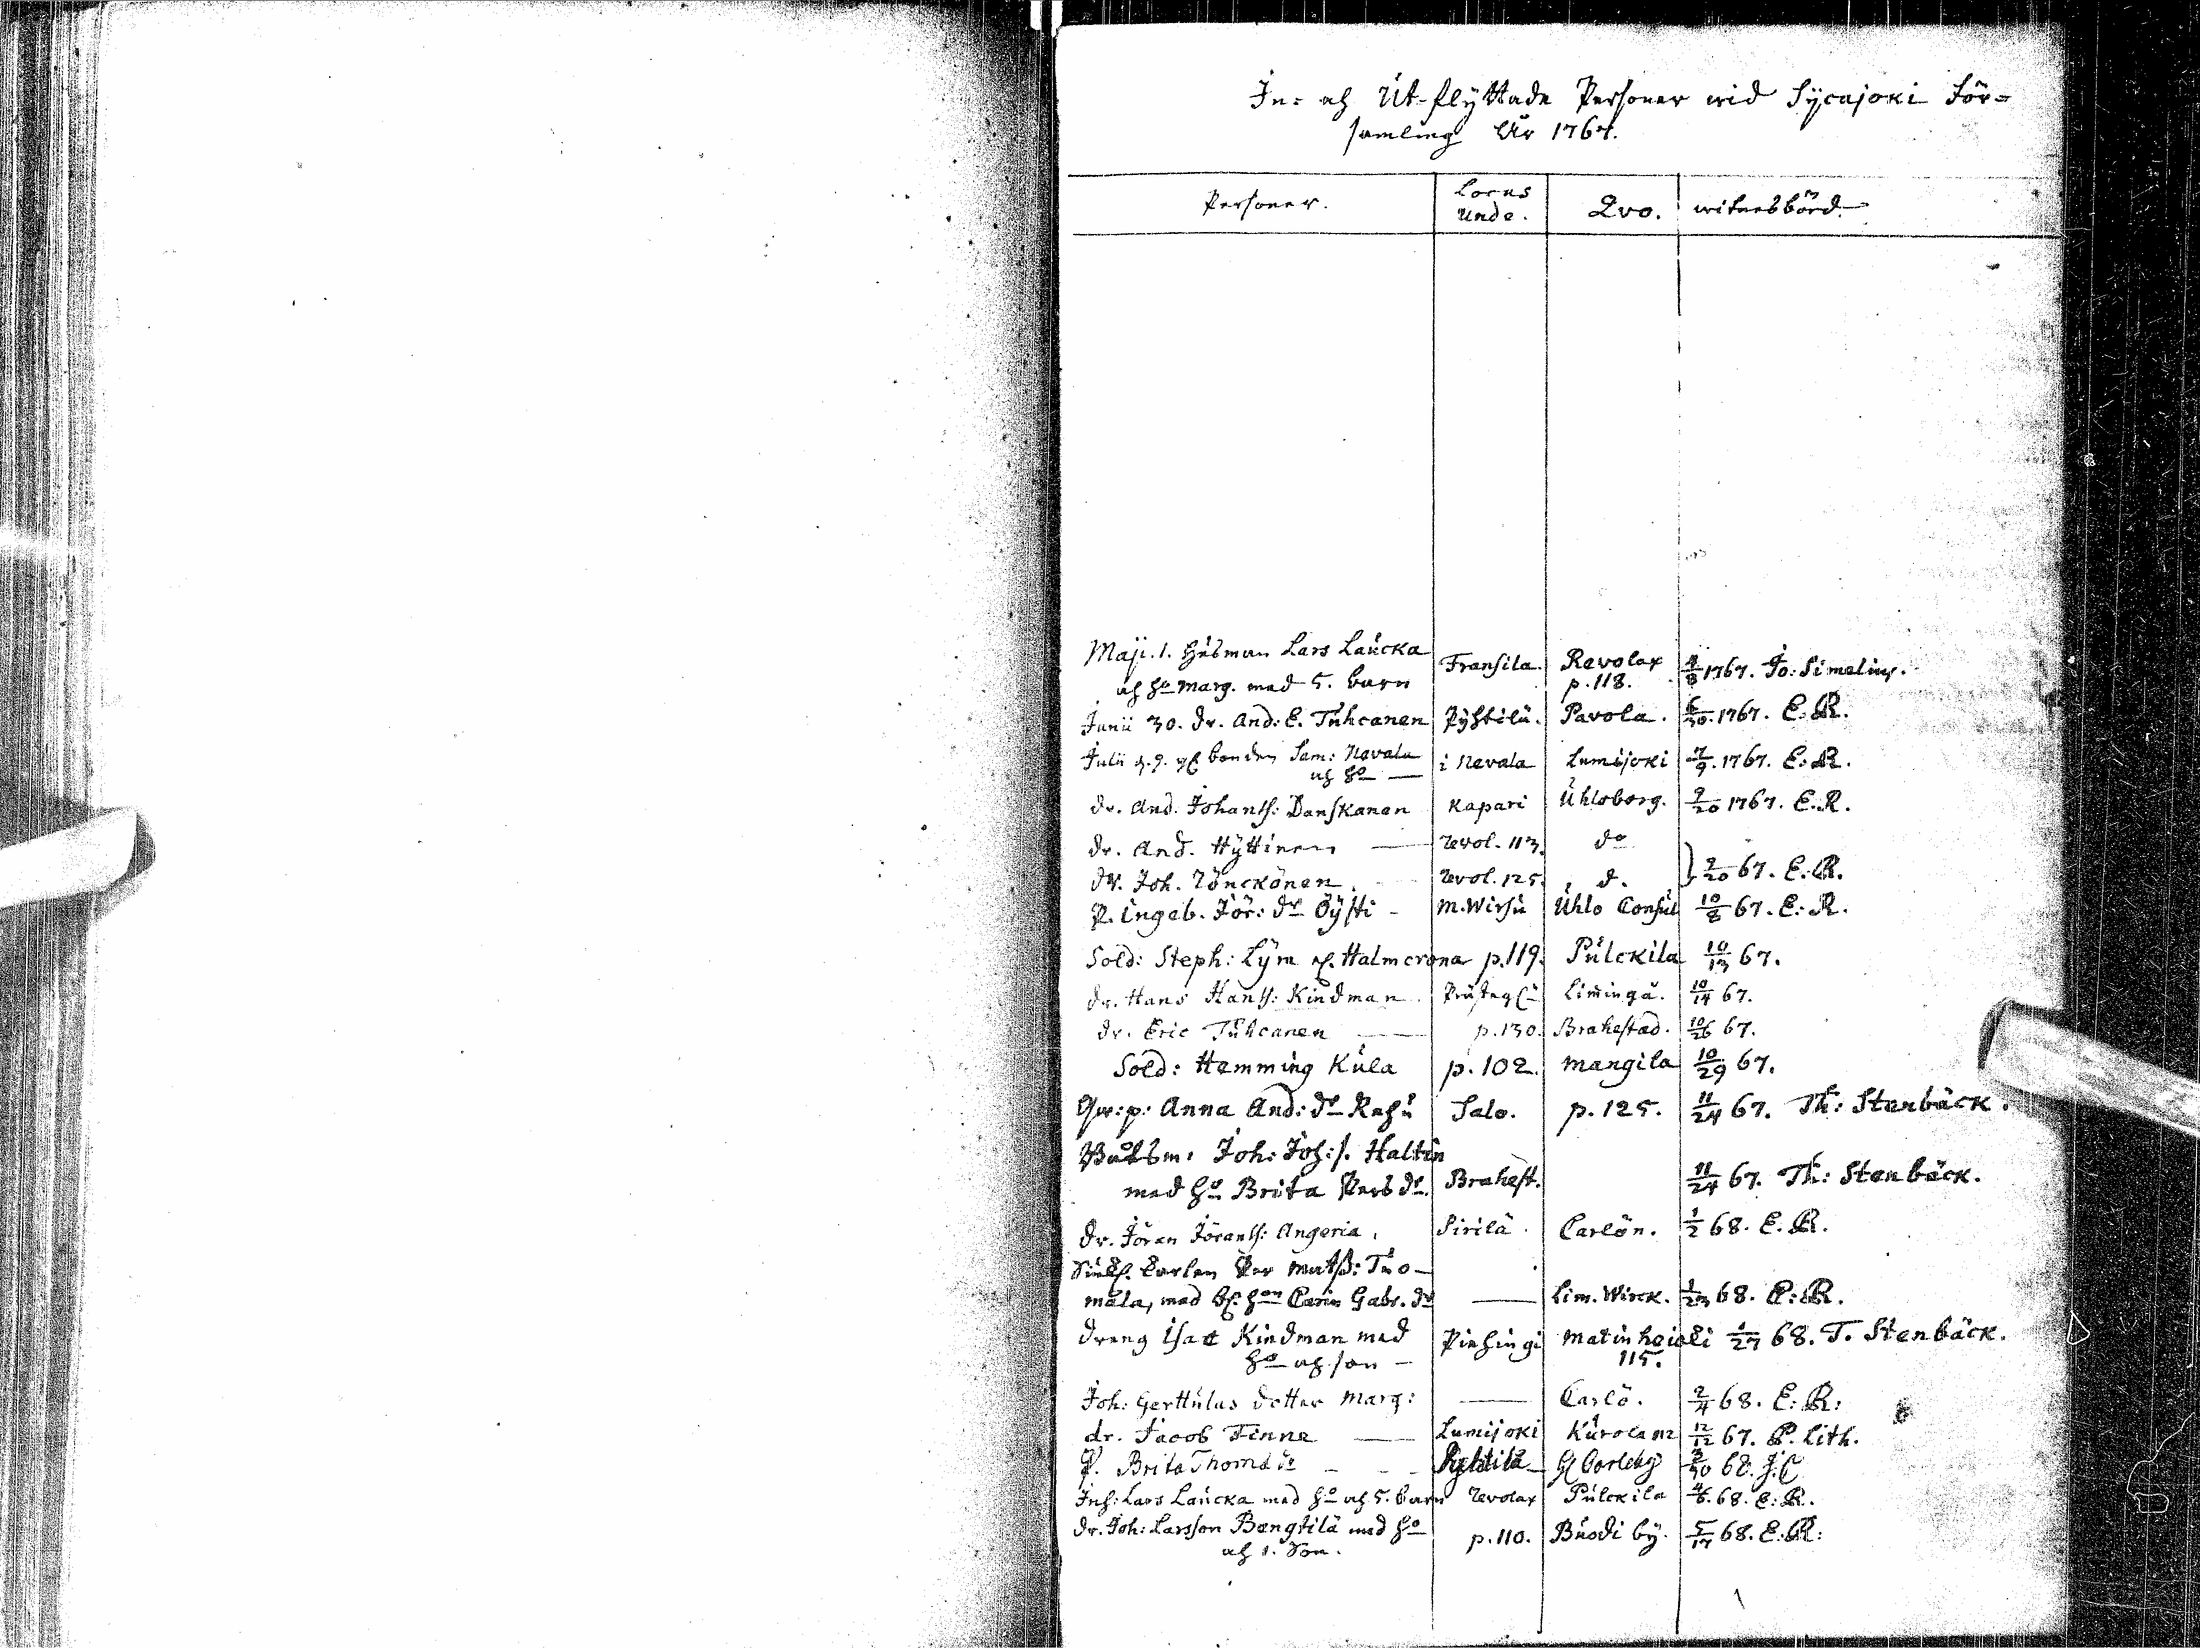 In- och Ut-flyttade Personer wid Sijcajoki För-
samling År 1767.
Personer. Locus Unde. Qvo. witnesbörd.
Maji. 1. Husman Lars Laucka Fransila. Revolax 4/8 1767. Jo: Simelius.
och ho Marg. med 5. barn p. 118.
Junii 30. dr. And: E. Tuhcanen Pyhtilä. Pavola. 6/30. 1767. E: R.
Julii d. 9. bonden Sam: Nevala i Nevala Lumijoki 7/9. 1767. E: R.
och ho
dr. And. Johanss: Danskanen Kapari Uhloborg. 9/20 1767. E. R.
dr. And. Hyttinen Revol. 113. do
dr. Joh. Rönckönen. Revol. 125. d. 9/20 67. E. R.
P. Ingeb. Jör: dr Öysti - M. Wirsu Uhlo Consul 10/8 67. E: R.
Sold: Steph: Lym Halmcrona p. 119. Pulckila 10/13 67.
dr. Hans Hanss: Kindman. Limingå. 10/14 67.
dr. Eric Tuhcanen p. 130. Brahestad. 10/26 67.
Sold: Hemming Kula p. 102. Mangila 10/29 67.
Qw: p: Anna And: dr Rahu Salo. p. 125. 11/24 67. Th: Stenbäck.
Båtsm: Joh: Joh: s. Haltin
med ho Brita Pers dr. Brahest. 11/24 67. Th: Stenbäck.
dr. Jöran Jöranss: Angeria. Sirilä. Carlön. 1/2 68. E. R.
Karlen Per Matss: Tuo-
mala, med Carin Gabr. dr Lim. Wirck. 1/23 68. E: R.
dreng Isac Kindman med Piehingi Matinheicki 1/27 68. T. Stenbäck.
ho och son - 115.
Joh: Gerttulas dotter Marg: Carlö. 2/4 68. E: R:
dr. Jacob Finne Lumijoki Kurola nr 12/12 67. P. Lith.
P. Brita Thomæ dr Pyhtilä G Carleby 3/30 68. J. C
Inh: Lars Laucka med ho och 5. barn Revolax Pulckila 4/6. 68. E: R.
dr. Joh: Larsson Bængtilä med ho p. 110. Buodi by. 5/17 68. E: R:
och 1. Son.